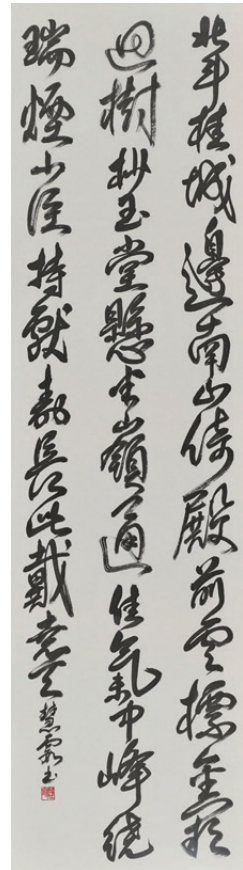 北斗挂城邊南山倚殿前雲標金闕
迥樹杪玉堂懸半嶺通佳氣中峰繞
瑞煙小臣持獻壽長此戴堯天 慧書